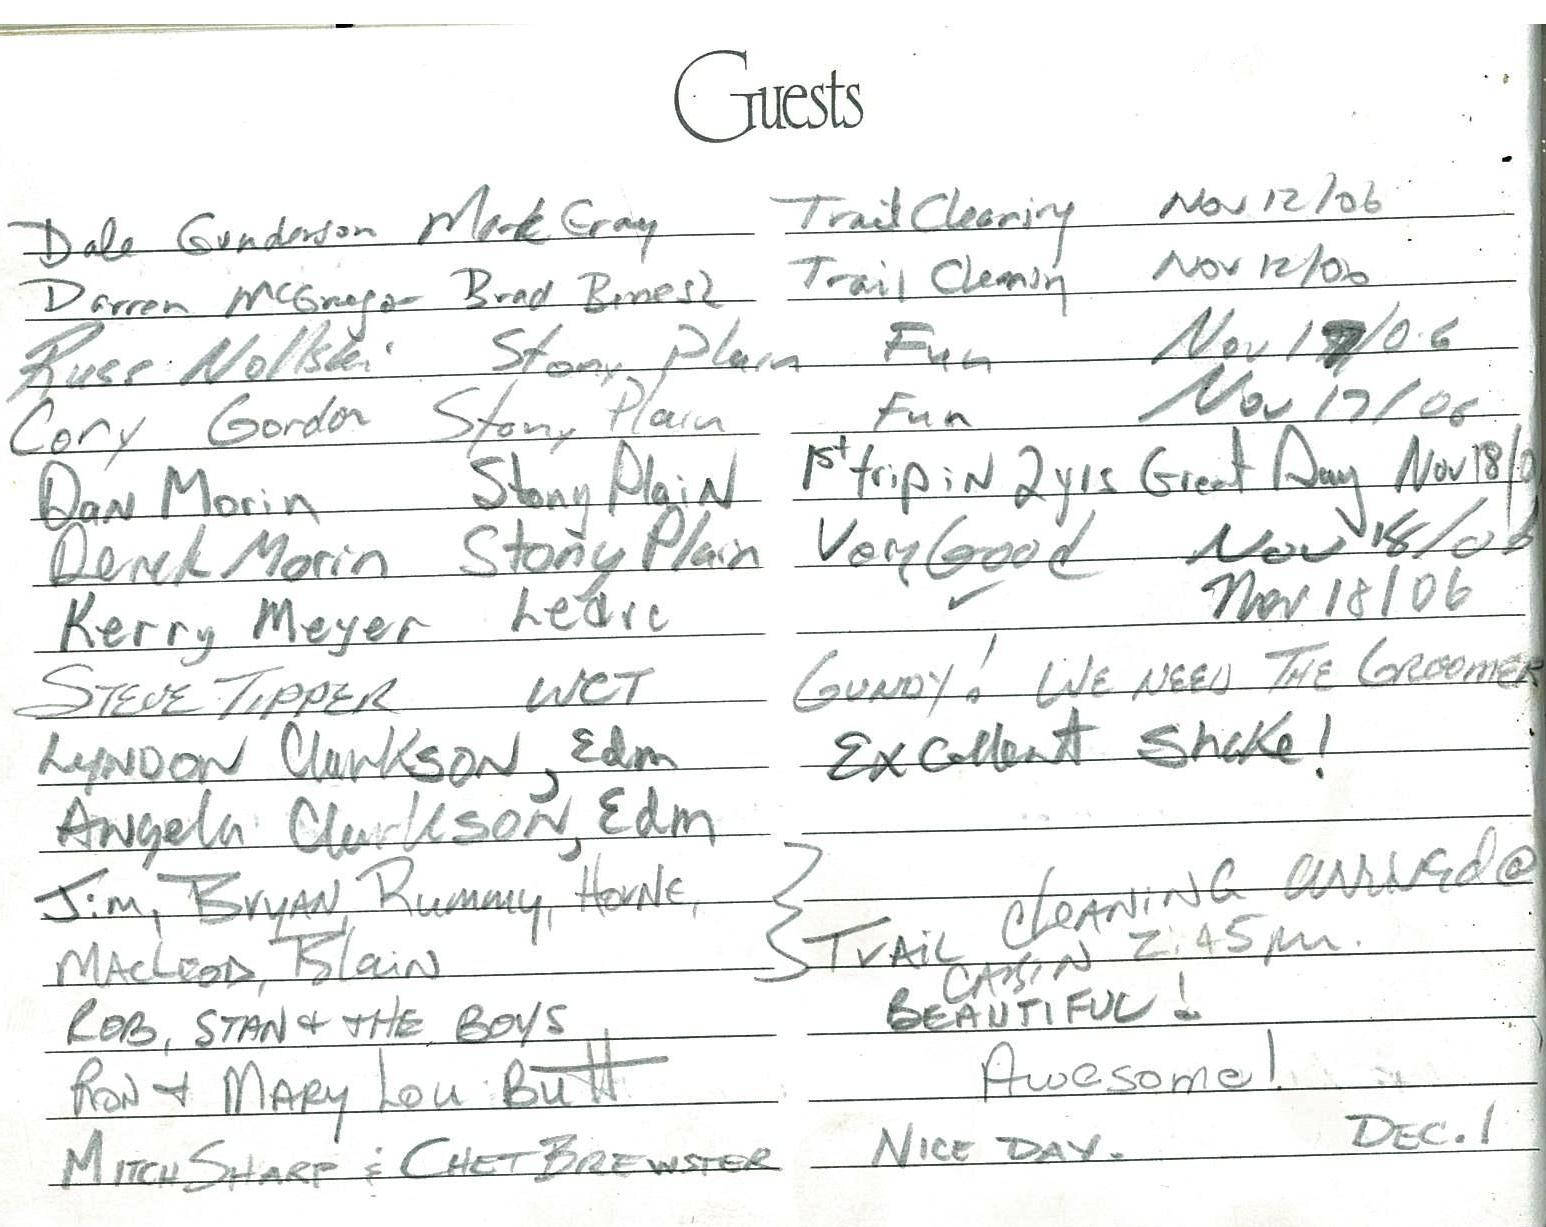 Guests
Dale Gunderson Mark Gray Trail Cleaning Nov 12/06
Darren McGregor Brad Trail Cleanin Nov 12/06
Russ Stony Plain Fun Nov 17/06
Cory Gordon Stony Plain Fun Nov 17/06
Dan Morin Stony Plain 1st trip in 2 yrs Great Day Nov 18/0
Derek Morin Stony Plain Very Good Nov 18/06
Kerry Meyer Leduc ✓ Nov 18/06
STEVE TIPPER WCT GUNDY! WE NEED THE GROOMER
LYNDON Clarkson, Edm Excellent Shake!
Angela Clarkson, Edm
Jim, BRYAN, Rummy, HORNE,
MACLEOD, Blain } TRAIL CLEANING arrived @
CABIN 2:45 pm.
ROB, STAN & THE BOYS BEAUTIFUL!
RON + MARY Lou Butt Awesome!
MITCH SHARP & CHET BREWSTER NICE DAY. DEC. 1